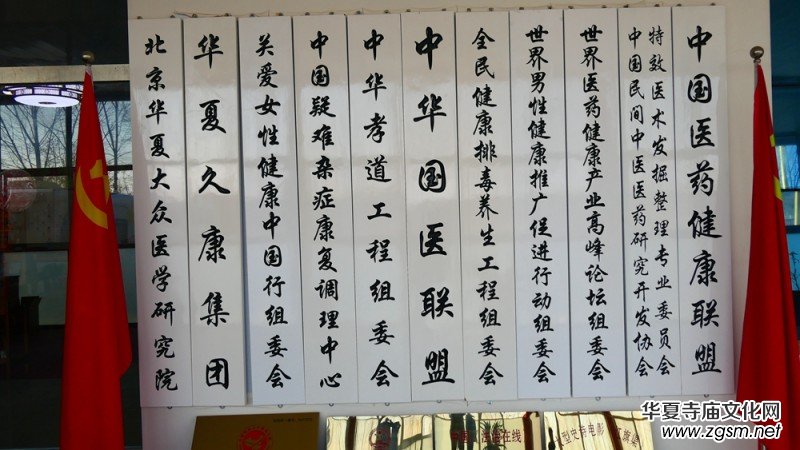 中国医药健康联盟
特效医术发掘整理专业委员会
中国民间中医医药研究开发协会
世界医药健康产业高峰论坛组委会
世界男性健康推广促进行动组委会
全民健康排毒养生工程组委会
中华国医联盟
中华孝道工程组委会
中国疑难杂症康复调理中心
关爱女性健康中国行组委会
华夏久康集团
北京华夏大众医学研究院
华夏寺庙文化网
www.zgsm.net